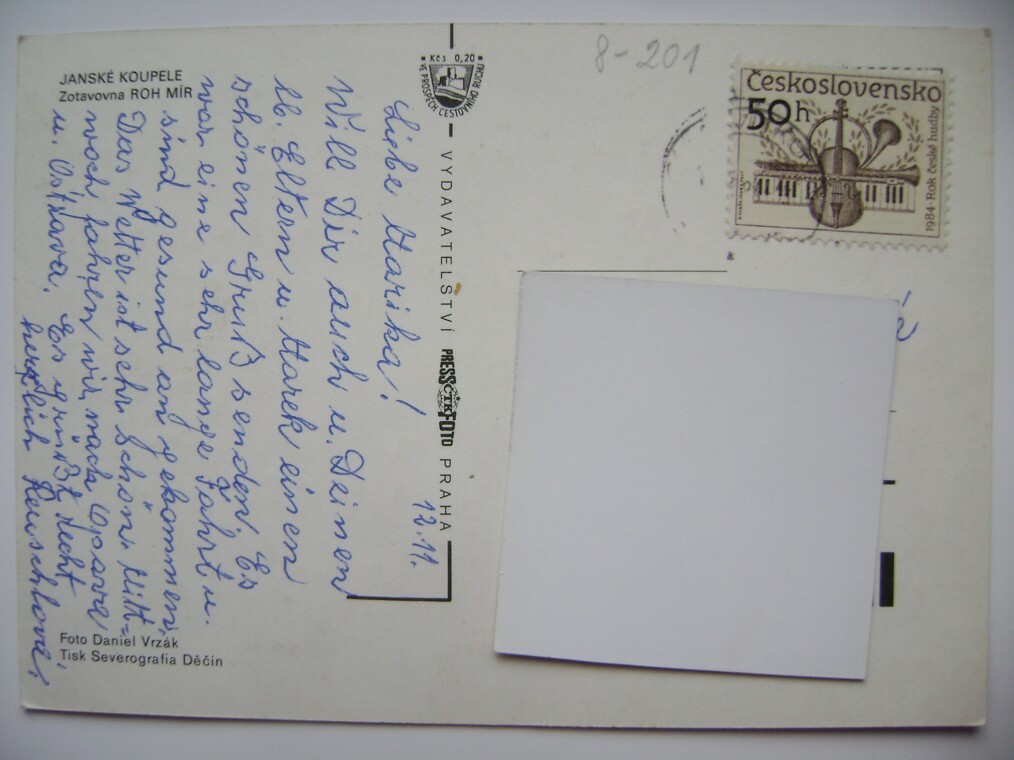 JANSKÉ KOUPELE
Zotavovna ROH MÍR
Kčs 0,20
VE PROSPĚCH CESTOVNÍHO RUCHU
8-201
Československo
50h
1984 · Rok české hudby
12.11.
Liebe Marika!
Will Dir auch u. Deinen
lb. Eltern u. Marek einen
schönen Gruß senden. Es
war eine sehr lange Fahrt u.
sind gesund angekommen,
Das Wetter ist sehr schön. Mitt=
woch fahren wir nach Opava
u. Ostrava. Es grüßt recht
herzlich Reuschlová.
VYDAVATELSTVÍ PRESSČTKFOTO PRAHA
Foto Daniel Vrzák
Tisk Severografia Děčín